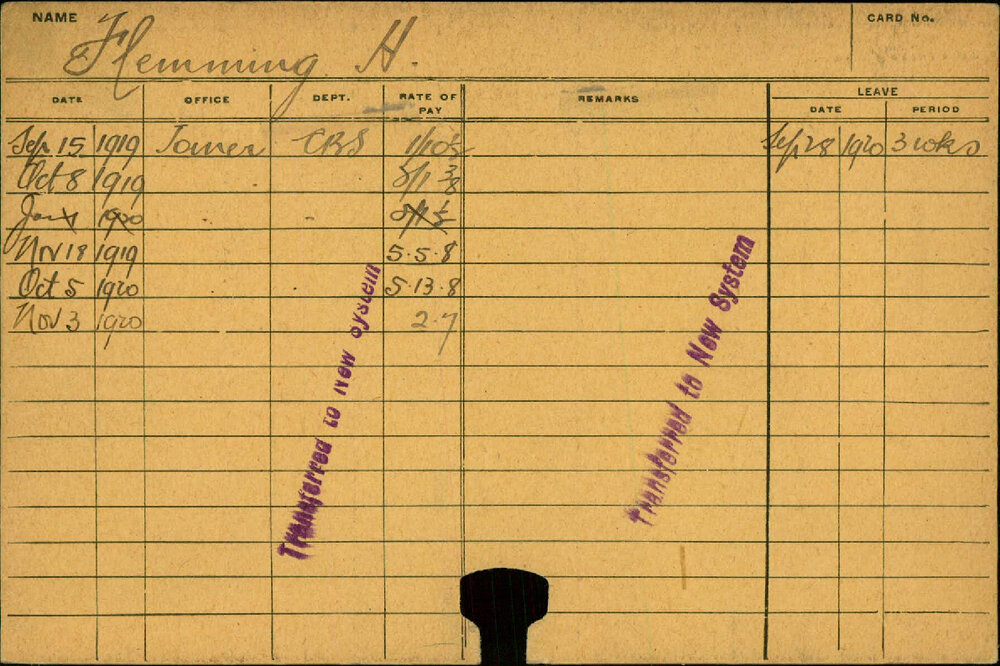 NAME Flemming H. CARD No.
DATE OFFICE DEPT. RATE OF PAY REMARKS LEAVE
DATE PERIOD
Sep 15 1919 Joiner CRS 1/10½ Sep 28 1920 3 wks
Oct 8 1919
Jan 1 1920
Nov 18 1919 5.5.8
Oct 5 1920 5.13.8
Nov 3 1920 2.7
Transferred to New System
Transferred to New System